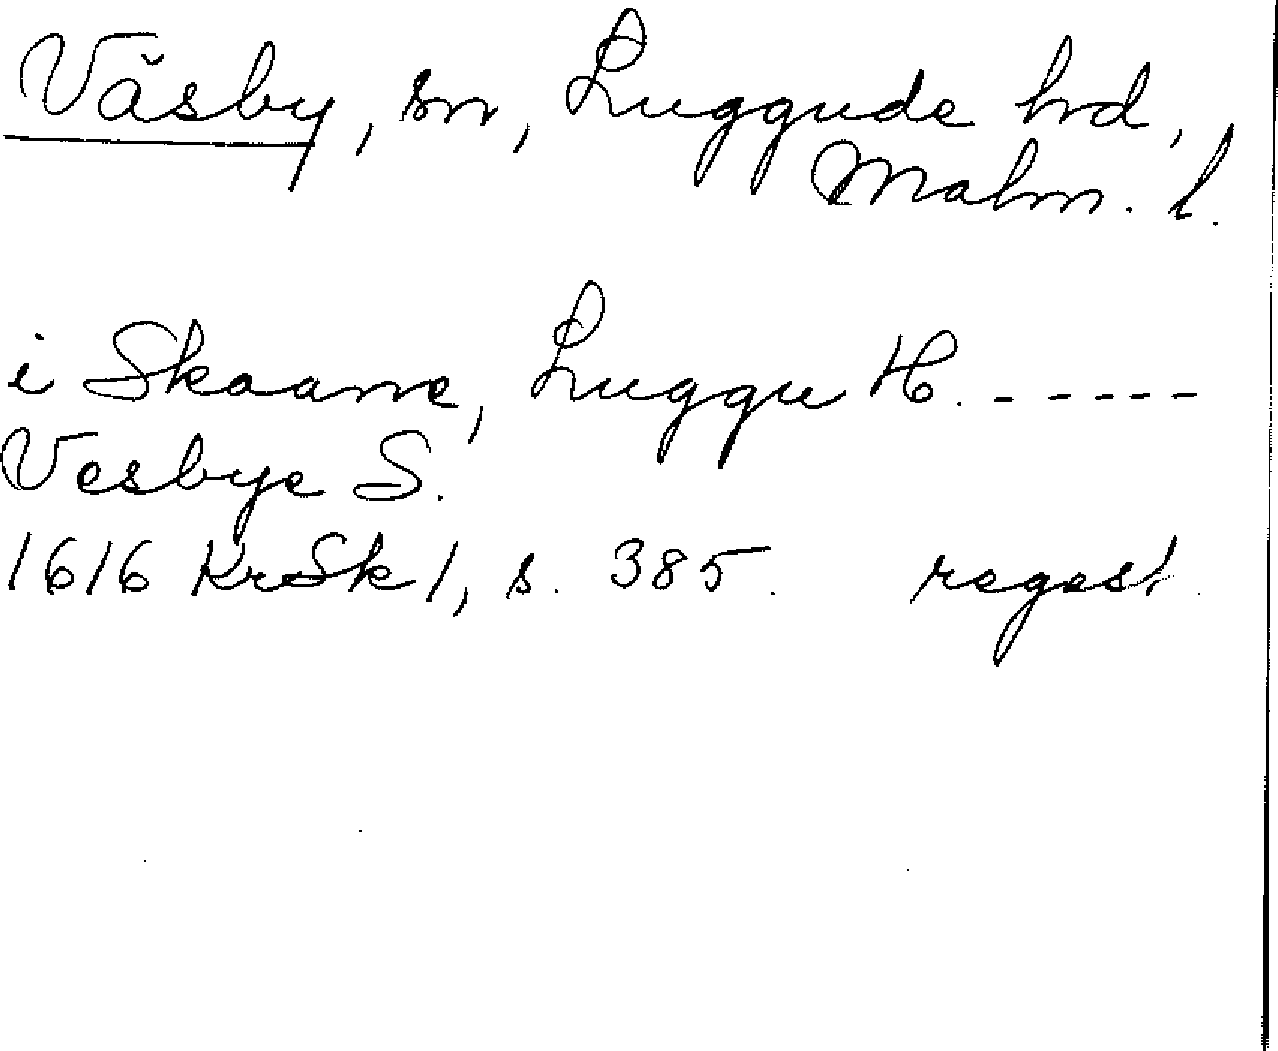 Väsby, sn, Luggude hd,
Malm. l.
i Skaane, Luggu H. - - - - - -
Vesbye S.
1616 KrSk 1, s. 385. regest.